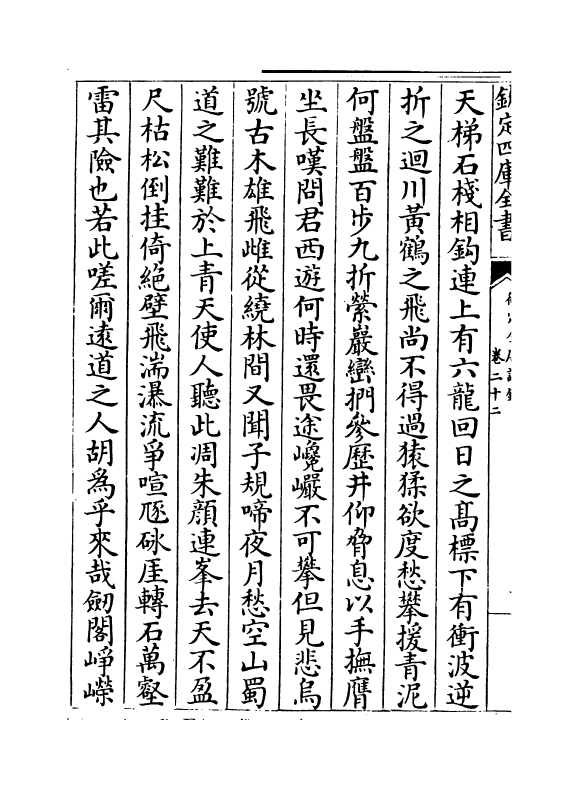 欽定四庫全書
卷二十二
天梯石棧相鈎連上有六龍回日之髙標下有衝波逆
折之迴川黃鶴之飛尚不得過猿猱欲度愁攀援青泥
何盤盤百步九折縈巖巒捫參歷井仰脅息以手撫膺
坐長嘆問君西遊何時還畏途巉巖不可攀但見悲鳥
號古木雄飛雌從繞林間又聞子規啼夜月愁空山蜀
道之難難於上青天使人聽此凋朱顔連峯去天不盈
尺枯松倒挂倚絶壁飛湍瀑流爭喧豗砯厓轉石萬壑
雷其險也若此嗟爾遠道之人胡爲乎來哉劒閣崢嶸